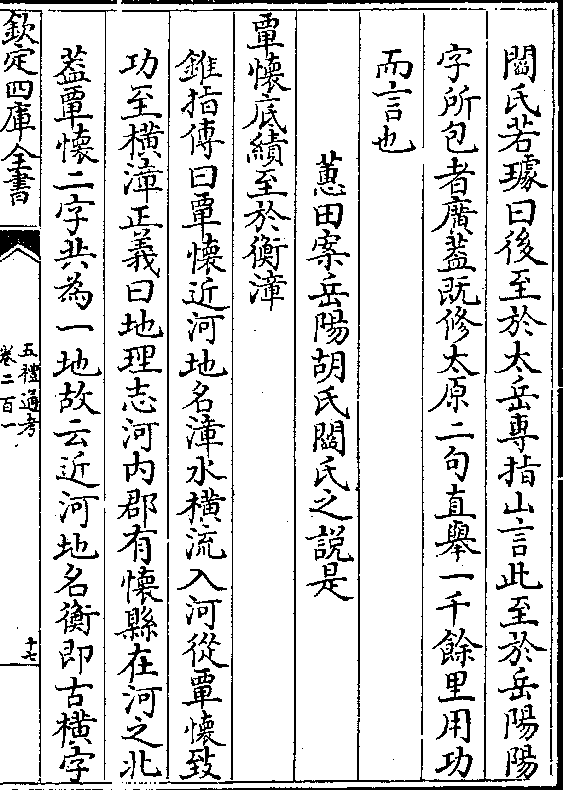 閻氏若璩曰後至於太岳専指山言此至於岳陽陽
字所包者廣葢既修太原二句直舉一千餘里用功
而言也
蕙田案岳陽胡氏閻氏之説是
覃懷底績至於衡漳
錐指傳曰覃懷近河地名漳水橫流入河從覃懷致
功至橫漳正義曰地理志河内郡有懷縣在河之北
葢覃懷二字共為一地故云近河地名衡即古橫字
欽定四庫全書
五禮通考
卷二百一
十七